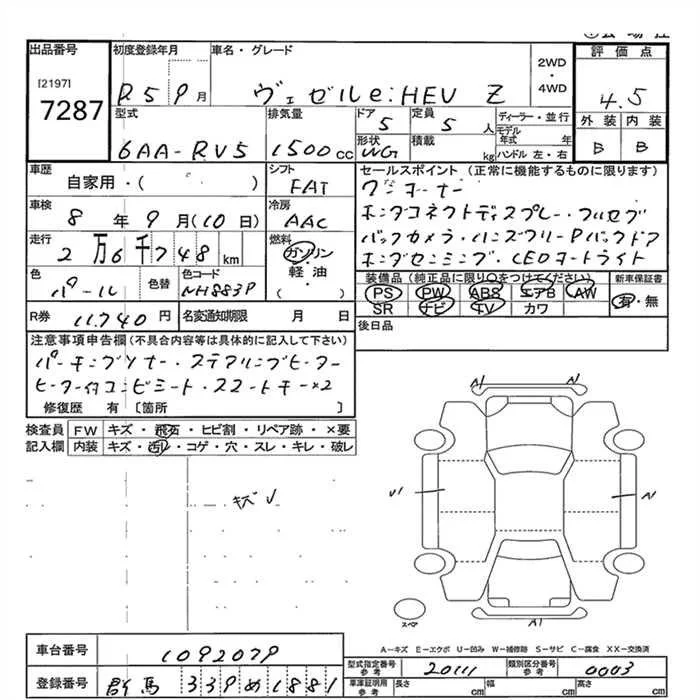 出品番号 初度登録年月 車名・グレード 2WD・4WD 評価点
[2197]
7287 R5 9月 ヴェゼルe:HEV Z 4.5
型式 排気量 ドア 定員 ディーラー・並行 外装 内装
6AA-RV5 1500cc 5 5人 モデル年式 年 B B
形状 積載 kg ハンドル 左・右
WG
車歴 シフト セールスポイント(正常に機能するものに限ります)
自家用・( ) FAT ワンオーナー
車検 冷房 ホンダコネクトディスプレー・フルセグ
8年9月(10日) AAC バックカメラ・ハンズフリーPバックドア
走行 燃料 ホンダセンシング・LEDヘッドライト
2万6千748km ガソリン 軽・油 ( )
色 色替 色コード 装備品(純正品に限り○をつけてください) 新車保証書
パール NH883P PS PW ABS エアB AW 有・無
SR ナビ TV カワ
R券 11,740円 名変通知期限 月 日 後日品
注意事項申告欄(不具合内容等は具体的に記入して下さい)
パーキングソナー・ステアリングヒーター
ヒーター付コンビシート・スマートキー×2
修復歴 有〔箇所 〕
検査員 FW キズ・飛石・ヒビ割・リペア跡・×要
記入欄 内装 キズ・汚レ・コゲ・穴・スレ・キレ・破レ
キズU
A1 A1
U1 A1
スペ A1
A-キズ E-エクボ U-凹み W-補修跡 S-サビ C-腐食 XX-交換済
車台番号 1092079 型式指定番号 参考 20111 類別区分番号 参考 0003
登録番号 群馬 339め1881 車庫証明用 参考 長さ cm 幅 cm 高さ cm